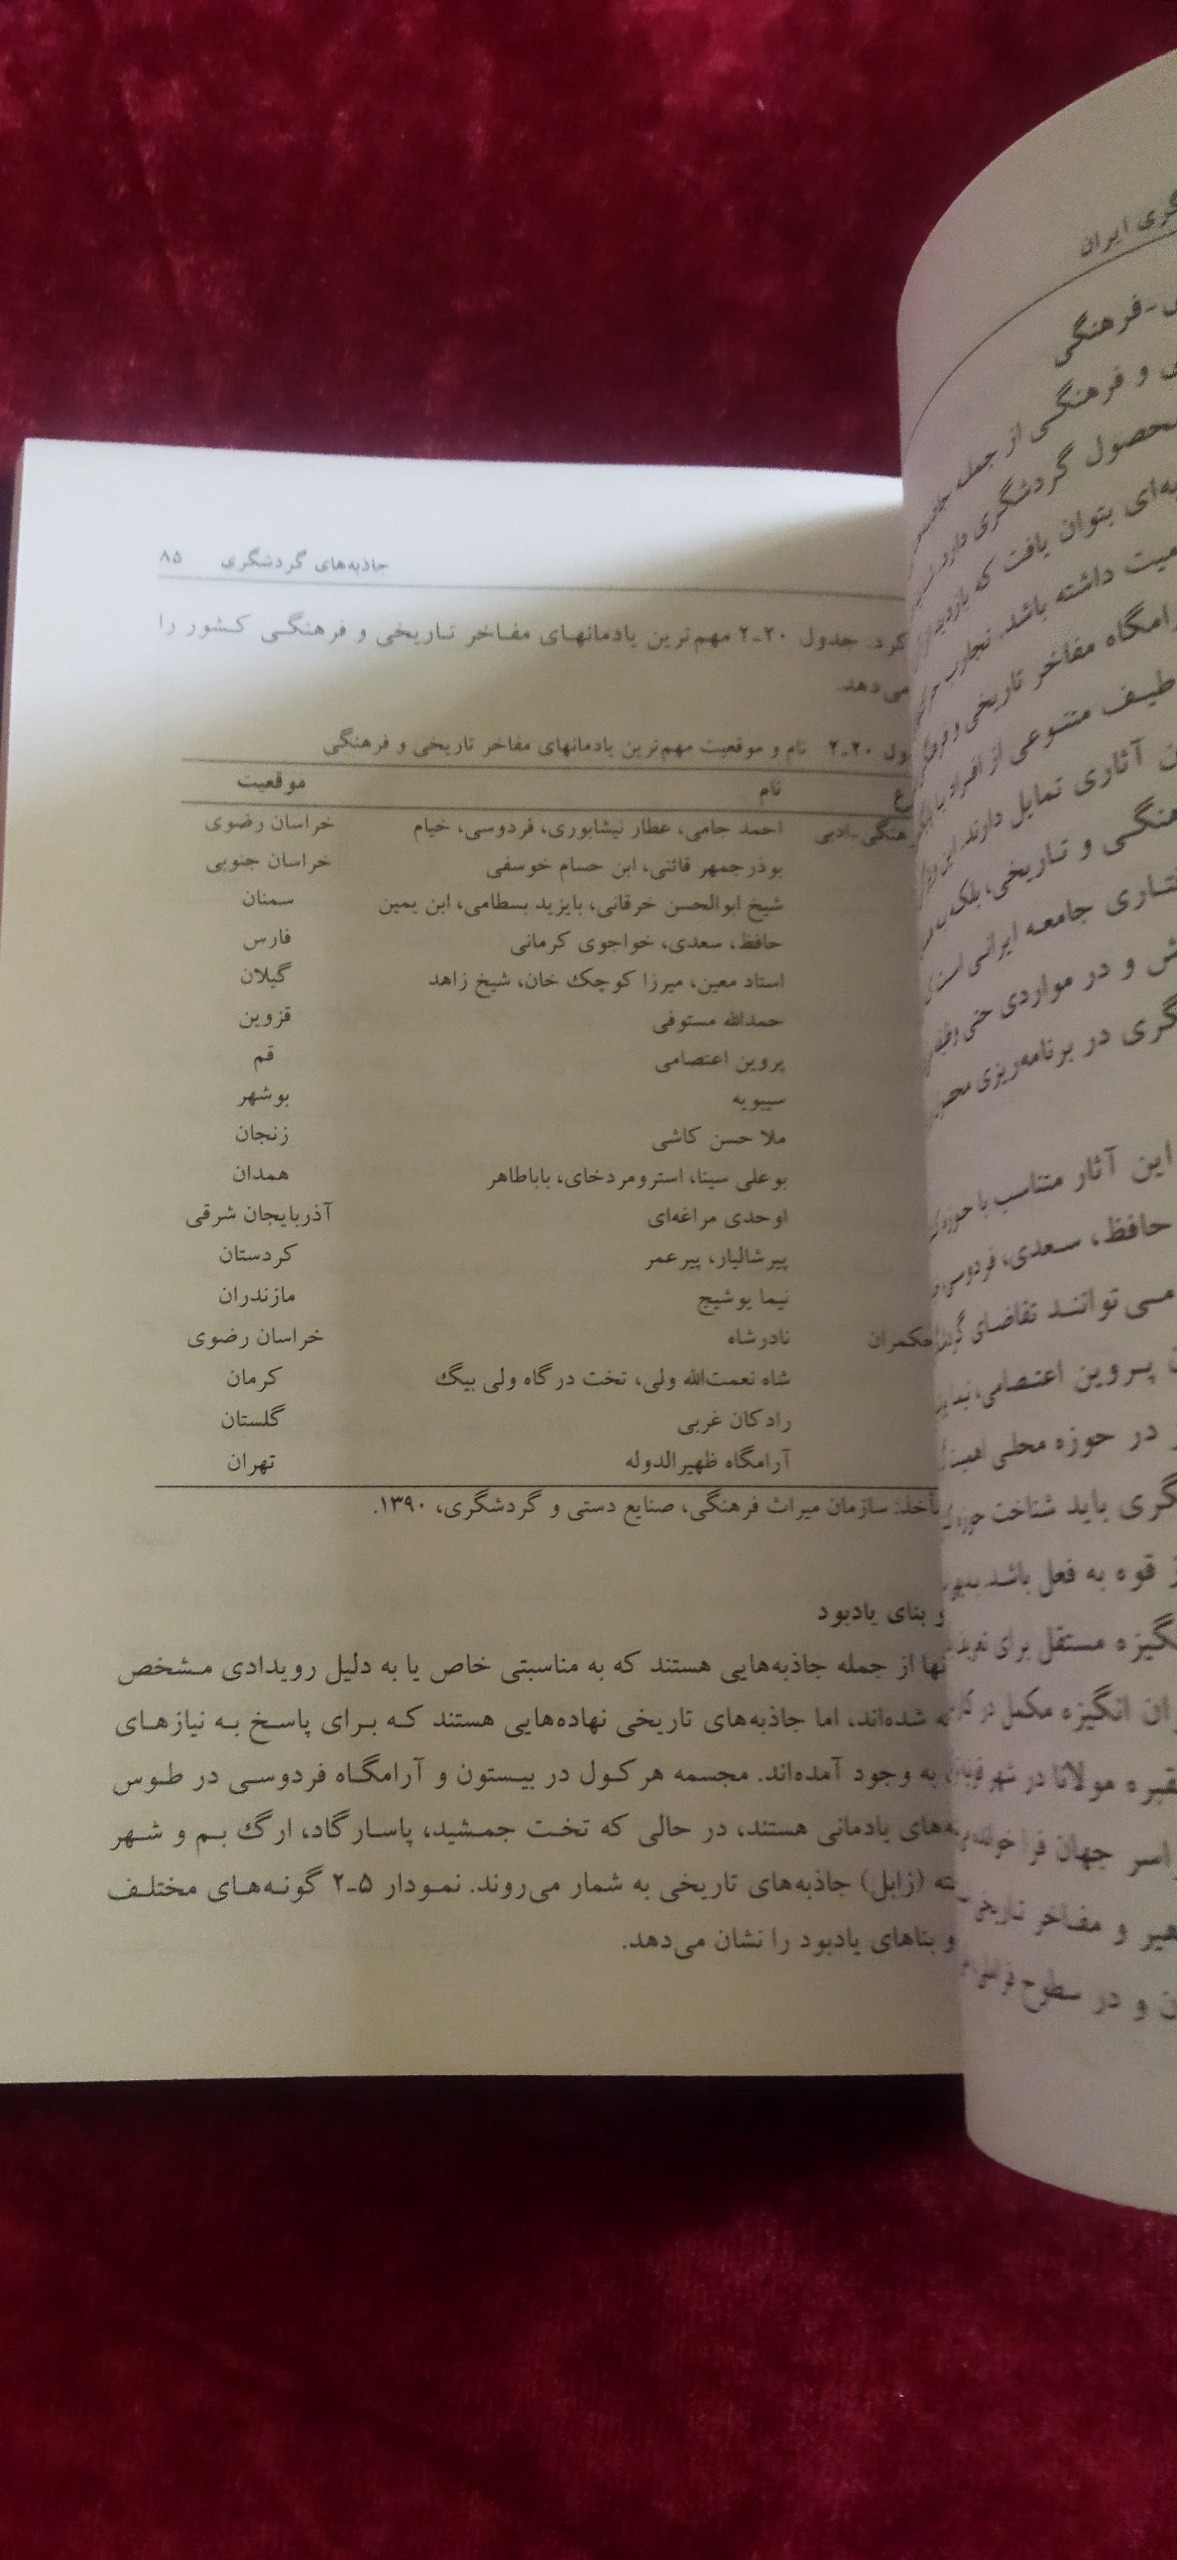 گری ایران
ی-فرهنگی
ی و فرهنگی از جمله
محصول گردشگری دارد
به‌ای بتوان یافت که بازدید از
میت داشته باشد. تجارب
رامگاه مفاخر تاریخی و
طیف متنوعی از افراد با
ن آثاری تمایل دارند. این
هنگی و تاریخی، بلکه به
تاری جامعه ایرانی است
ش و در مواردی حتی
گری در برنامه‌ریزی
این آثار متناسب با حوزه
حافظ، سعدی، فردوسی
می‌توانند تقاضای
ن پروین اعتصامی،
ر در حوزه محلی
گری باید شناخت حوزه
ز قوه به فعل باشد.
نگیزه مستقل برای
ران انگیزه مکمل در
قبره مولانا در شهر
راسر جهان فرا
هیر و مفاخر تاریخی
ن و در سطوح
جاذبه‌های گردشگری ۸۵
کرد. جدول ۲۰-۲ مهم‌ترین یادمانهای مفاخر تاریخی و فرهنگی کشور را
می‌دهد.
ول ۲۰-۲ نام و موقعیت مهم‌ترین یادمانهای مفاخر تاریخی و فرهنگی
ع نام موقعیت
هنگی-ادبی احمد جامی، عطار نیشابوری، فردوسی، خیام خراسان رضوی
بوذرجمهر قائنی، ابن حسام خوسفی خراسان جنوبی
شیخ ابوالحسن خرقانی، بایزید بسطامی، ابن یمین سمنان
حافظ، سعدی، خواجوی کرمانی فارس
استاد معین، میرزا کوچک خان، شیخ زاهد گیلان
حمدالله مستوفی قزوین
پروین اعتصامی قم
سیبویه بوشهر
ملا حسن کاشی زنجان
بوعلی سینا، استرومردخای، باباطاهر همدان
اوحدی مراغه‌ای آذربایجان شرقی
پیرشالیار، پیرعمر کردستان
نیما یوشیج مازندران
حکمران نادرشاه خراسان رضوی
شاه نعمت‌الله ولی، تخت درگاه ولی بیگ کرمان
رادکان غربی گلستان
آرامگاه ظهیرالدوله تهران
مأخذ: سازمان میراث فرهنگی، صنایع دستی و گردشگری، ۱۳۹۰.
و بنای یادبود
نها از جمله جاذبه‌هایی هستند که به مناسبتی خاص یا به دلیل رویدادی مشخص
ه شده‌اند، اما جاذبه‌های تاریخی نهاده‌هایی هستند که برای پاسخ به نیازهای
به وجود آمده‌اند. مجسمه هرکول در بیستون و آرامگاه فردوسی در طوس
ه‌های یادمانی هستند، در حالی که تخت جمشید، پاسارگاد، ارگ بم و شهر
ته (زابل) جاذبه‌های تاریخی به شمار می‌روند. نمودار ۵-۲ گونه‌های مختلف
و بناهای یادبود را نشان می‌دهد.